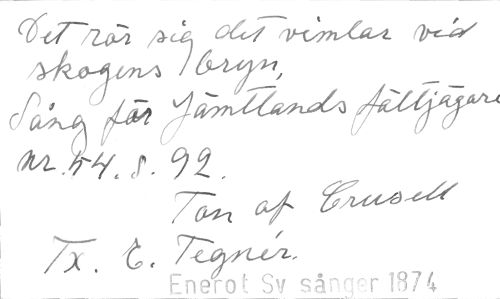 Det rör sig det vimlar vid
skogens bryn,
Sång för Jämtlands fältjägare
nr. 54. s. 92.
Ton af Crusell
Tx. E. Tegnér.
Enerot Sv sånger 1874